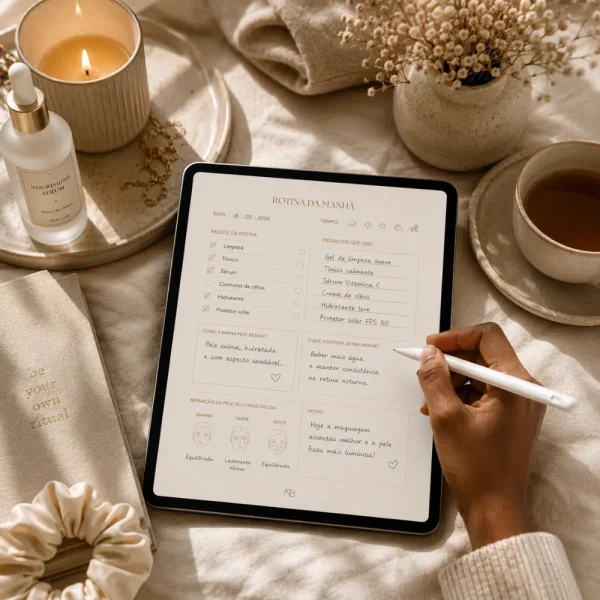 NOURISHING
SERUM
ROTINA DA MANHÃ
DATA
TEMPO:
PASSOS DA ROTINA
Limpeza
Tônico
Sérum
Contorno de olhos
Hidratante
Protetor solar
PRODUTOS QUE USO
Gel de limpeza suave
Tônico calmante
Sérum Vitamina C
Creme de olhos
Hidratante leve
Protetor solar FPS 50
COMO A MINHA PELE REAGIU?
Pele calma, hidratada
e com aspecto saudável.
O QUE GOSTARIA DE MELHORAR?
Beber mais água
e manter consistência
na rotina noturna.
SENSAÇÃO DA PELE AO LONGO DO DIA
MANHÃ
TARDE
NOITE
Equilibrada
Levemente
oleosa
Equilibrada
NOTAS
Hoje a maquiagem
assentou melhor e a pele
ficou mais luminosa!
be
your
own
ritual